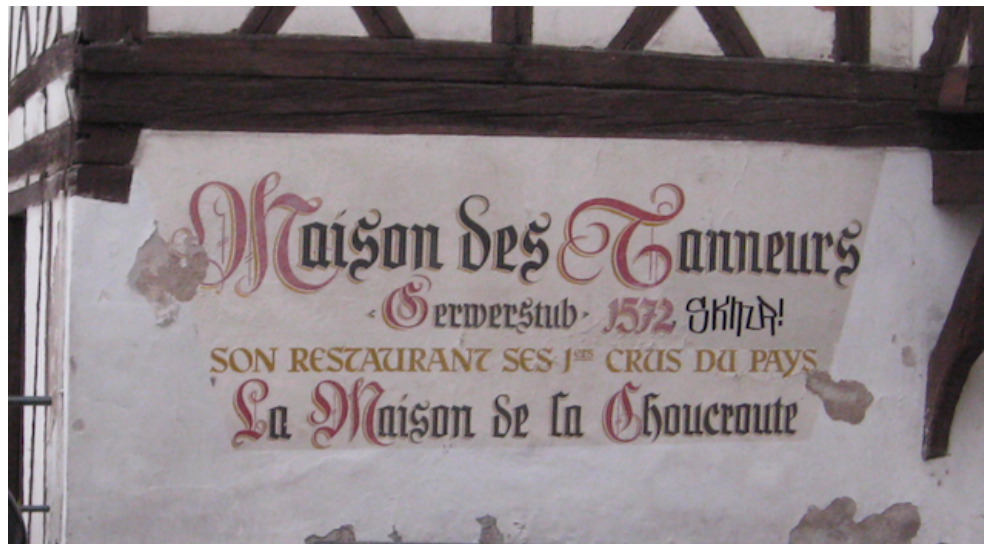 Maison des Tanneurs
‹ Gerwerstub › 1572
SON RESTAURANT SES 1ers CRUS DU PAYS
La Maison de la Choucroute